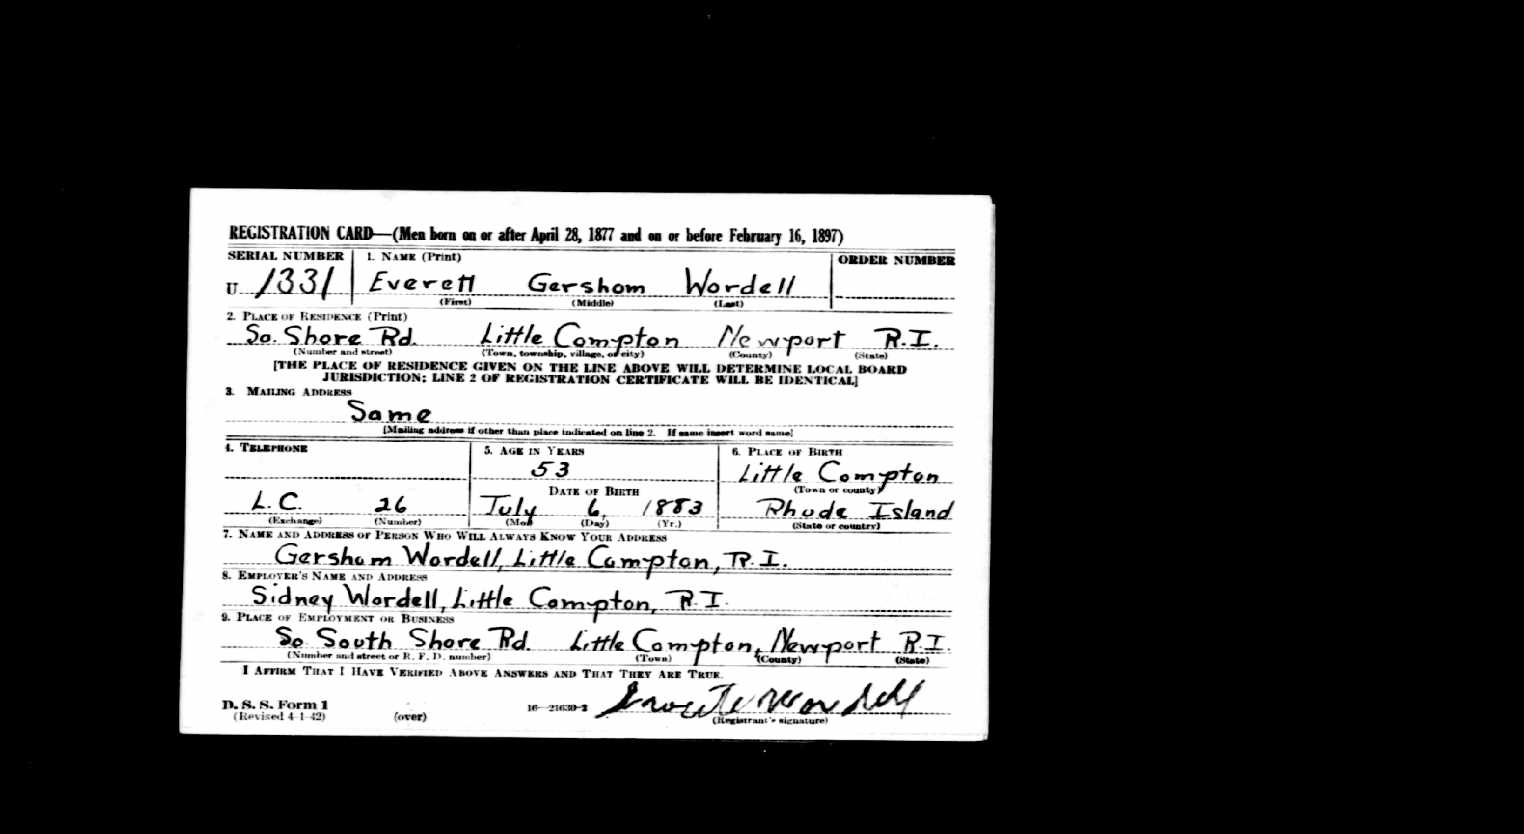 REGISTRATION CARD—(Men born on or after April 28, 1877 and on or before February 16, 1897)
SERIAL NUMBER 1. NAME (Print) ORDER NUMBER
U 1331 Everett Gershom Wordell
(First) (Middle) (Last)
2. PLACE OF RESIDENCE (Print)
So. Shore Rd. Little Compton Newport R.I.
(Number and street) (Town, township, village, or city) (County) (State)
[THE PLACE OF RESIDENCE GIVEN ON THE LINE ABOVE WILL DETERMINE LOCAL BOARD
JURISDICTION; LINE 2 OF REGISTRATION CERTIFICATE WILL BE IDENTICAL]
3. MAILING ADDRESS
Same
[Mailing address if other than place indicated on line 2. If same insert word same]
4. TELEPHONE 5. AGE IN YEARS 6. PLACE OF BIRTH
53 Little Compton
DATE OF BIRTH (Town or county)
L.C. 26 July 6, 1883 Rhode Island
(Exchange) (Number) (Mo.) (Day) (Yr.) (State or country)
7. NAME AND ADDRESS OF PERSON WHO WILL ALWAYS KNOW YOUR ADDRESS
Gershom Wordell, Little Compton, R.I.
8. EMPLOYER'S NAME AND ADDRESS
Sidney Wordell, Little Compton, R.I.
9. PLACE OF EMPLOYMENT OR BUSINESS
So South Shore Rd. Little Compton, Newport R.I.
(Number and street or R. F. D. number) (Town) (County) (State)
I AFFIRM THAT I HAVE VERIFIED ABOVE ANSWERS AND THAT THEY ARE TRUE.
D. S. S. Form 1
(Revised 4-1-42) (over) 16—21630-2 Everett Wordell
(Registrant's signature)